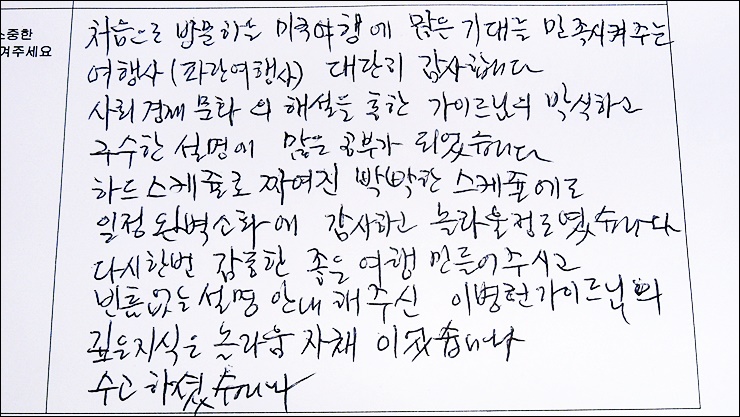 소중한
겨주세요
처음으로 방문하는 미국여행에 많은 기대를 만족시켜주는
여행사(파란여행사) 대단히 감사합니다
사회경제문화의 해설을 혹한 가이드님의 박식하고
구수한 설명에 많은 공부가 되었습니다
하드스케쥴로 짜여진 빡빡한 스케쥴에도
일정 완벽소화에 감사하고 놀라울정도였습니다
다시한번 감동한 좋은 여행 만들어주시고
빈틈없는 설명 안내해주신 이병헌가이드님의
깊은지식은 놀라움 자체 이었습니다
수고하셨습니다